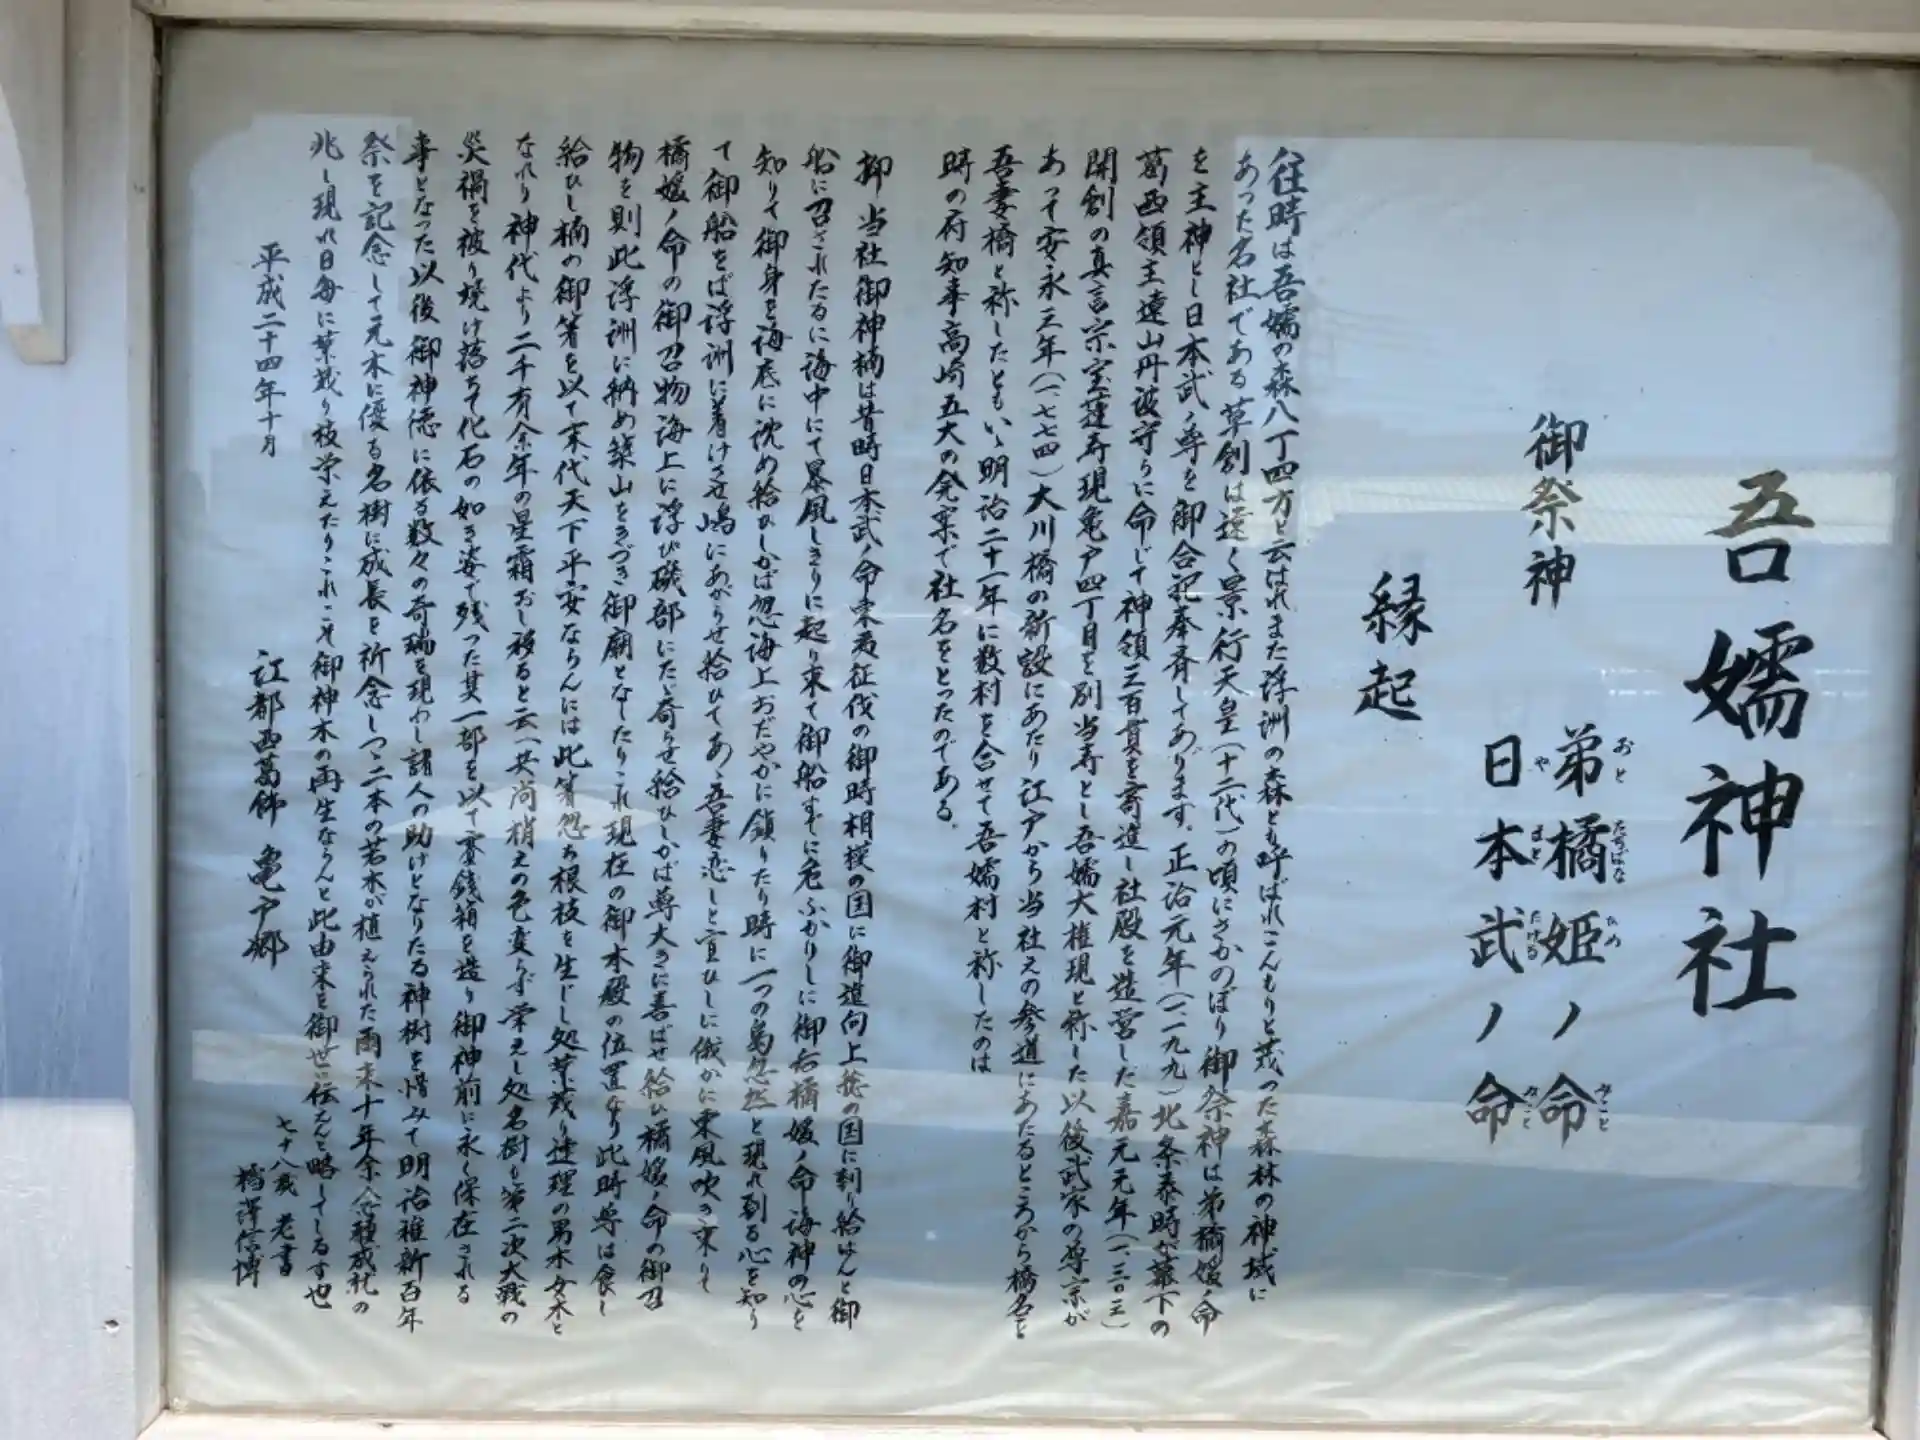 吾嬬神社
御祭神
弟橘姫ノ命
おと たちばな ひめ みこと
日本武ノ命
や まと たける みこと
縁起
往時は吾嬬の森八丁四方と云はれまた浮洲の森とも呼ばれこんもりと茂った森林の神域に
あった名社である草創は遠く景行天皇(十二代)の頃にさかのぼり御祭神は弟橘媛ノ命
を主神とし日本武ノ尊を御合祀奉斉してあります。正治元年(一一九九)北条泰時が幕下の
葛西領主遠山丹波守らに命じて神領三百貫を寄進し社殿を造営した嘉元元年(一三〇三)
開創の真言宗宝蓮寺現亀戸四丁目を別当寺とし吾嬬大権現と称した以後武家の尊宗が
あって安永三年(一七七四)大川橋の新設にあたり江戸から当社えの参道にあたるところから橋名を
吾妻橋と称したともいゝ明治二十一年に数村を合せて吾嬬村と称したのは
時の府知事高崎五六の発案で社名をとったのである。
抑 当社御神楠は昔時日本武ノ命東夷征伐の御時相模の国に御進向上総の国に到り給はんと御
船に召されたるに海中にて暴風しきりに起り来て御船すでに危ふかりしに御后橘媛ノ命海神の心を
知りて御身を海底に沈め給ひしかば忽海上おだやかに鎮りたり時に一つの島忽然と現れ到る心を知り
て御船をば浮洲に着けさせ嶋にあがらせ給ひてあゝ吾妻恋しと宣ひしに俄かに東風吹き来りて
橘媛ノ命の御召物海上に浮び磯部にたゞ寄らせ給ひしかば尊大きに喜ばせ給ひ橘媛ノ命の御召
物を則此浮洲に納め築山をきづき御廟となしたりこれ現在の御本殿の位置なり此時尊は食し
給ひし楠の御箸を以て末代天下平安ならんには此箸忽ち根枝を生じし処葉茂り連理の男木女木と
なれり神代より二千有余年の星霜おし移ると云へ共尚梢えの色変らず栄えし処名樹も第二次大戦の
災禍を被り焼け落ちて化石の如き姿で残った其一部を以て賽銭箱を造り御神前に永く保存される
事となった以後御神徳に依る数々の奇瑞を現わし諸人の助けとなりたる神樹を惜みて明治維新百年
祭を記念して元木に優る名樹に成長を祈念しつゝ二本の若木が植えられた雨来十年余念願成就の
兆し現れ日毎に葉茂り枝栄えたりこれこそ御神木の再生ならんと此由来を御世に伝えんと略してしるす也
平成二十四年十月
江都西葛飾 亀戸郷
七十八歳 老書
信博